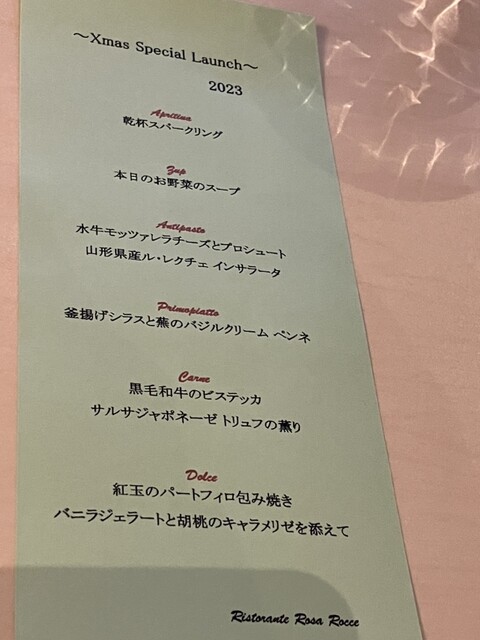 ～Xmas Special Launch～
2023
Apritina
乾杯スパークリング
Zup
本日のお野菜のスープ
Antipasto
水牛モッツァレラチーズとプロシュート
山形県産ル・レクチェ インサラータ
Primopiatto
釜揚げシラスと蕪のバジルクリーム ペンネ
Carne
黒毛和牛のビステッカ
サルサジャポネーゼ トリュフの薫り
Dolce
紅玉のパートフィロ包み焼き
バニラジェラートと胡桃のキャラメリゼを添えて
Ristorante Rosa Rocce